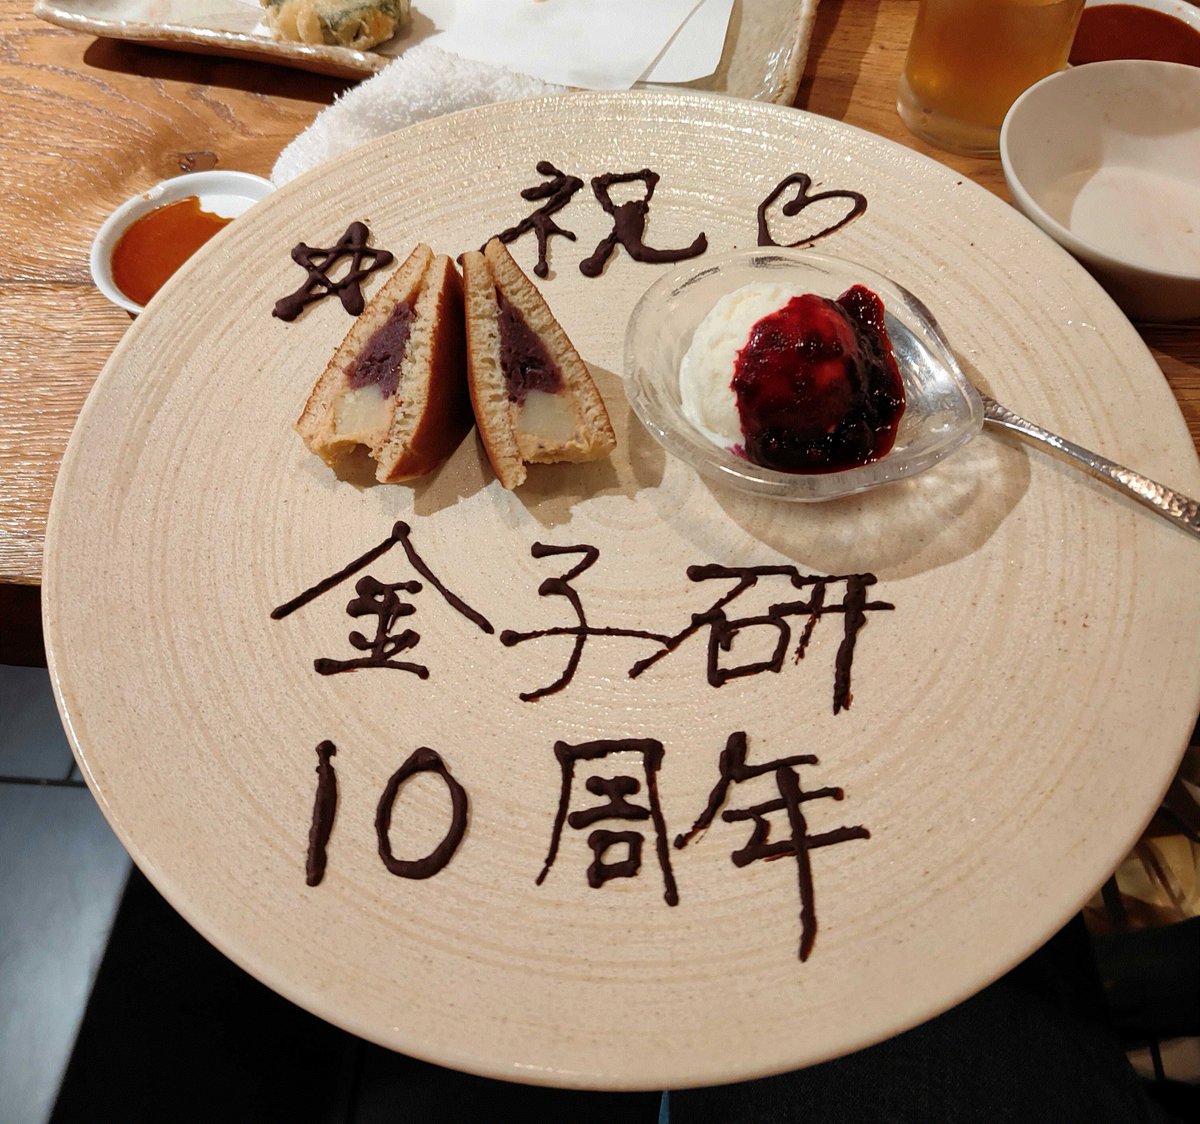 ☆ 祝 ♡
金子研
10周年